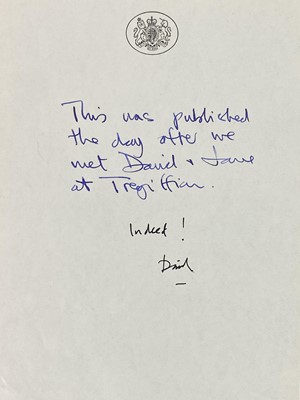 This was published
the day after we
met David + Jane
at Tregiffian.
Indeed !
David